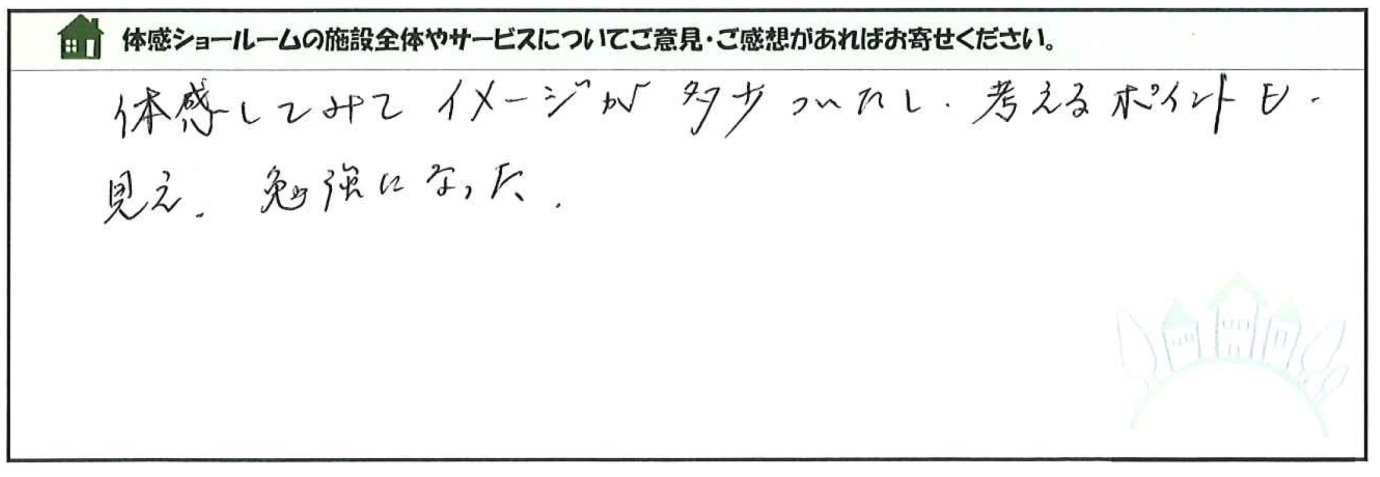 体感ショールームの施設全体やサービスについてご意見・ご感想があればお寄せください。
体感してみてイメージが多少ついたし、考えるポイントも、
見え、勉強になった。